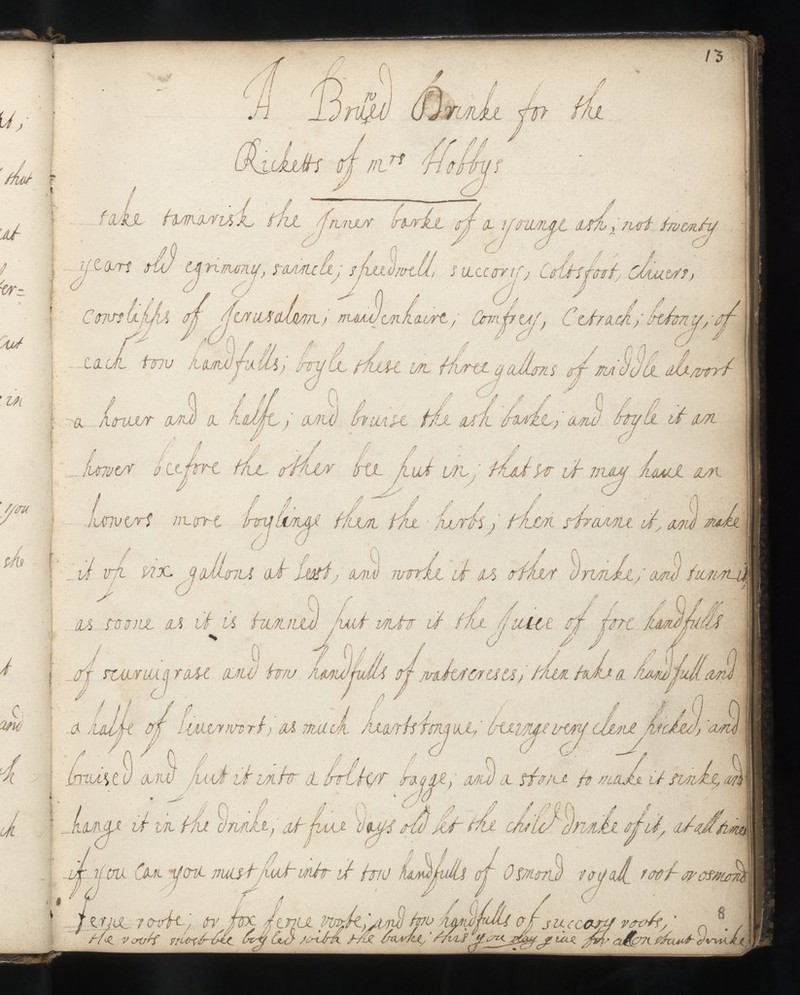 13
A Brued Drinke for the
Ricketts of mrs Hobbys
take tamarisk the Inner barke of a younge ash, not twenty
years old egrimony, saincle, speedwell, succory, Coltsfoot, clivers,
Cowslipps of Jerusalem, maidenhaire, Comfrey, Cetrach, betony, of
each tow handfulls, boyle these in three gallons of middle alewort
a houer and a halfe, and bruise the ash barke, and boyle it an
hower beefore the other bee put in, that so it may have an
howers more boylinge then the herbs, then straine it, and make
it up six gallons at least, and worke it as other drinke, and tunn it,
as soone as it is tunned put into it the Juice of fore handfulls
of scuruigrase and tow handfulls of watercreses, then take a handfull and
a halfe of liuerwort, as much heartstongue, beeinge very clene picked, and
bruised and put it into a bolter bagge, and a stone to make it sinke, and
hange it in the drinke, at fiue days old let the child drinke of it, at all times
if you Can you must put into it tow handfulls of Osmond royall root or osmond
ferne roote, or fox ferne roote, and tow handfulls of succory roots,
the roots must bee boyled with the barke, this you may giue for a Constant drinke
8
ut,
that
eat
er=
Cut
in
you
she
t
and
th
ch